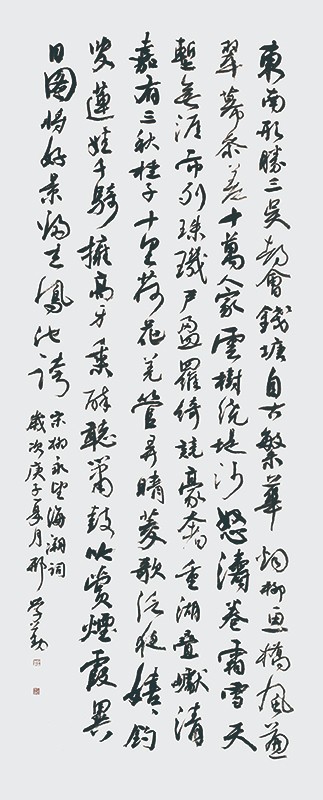 東南形勝三吳都會錢塘自古繁華烟柳畫橋風簾
翠幕參差十萬人家雲樹繞堤沙怒濤卷霜雪天
塹無涯市列珠璣戶盈羅綺競豪奢重湖疊巘清
嘉有三秋桂子十里荷花羌管弄晴菱歌泛夜嬉嬉釣
叟蓮娃千騎擁高牙乘醉聽簫鼓吟賞煙霞異
日圖將好景歸去鳳池誇
宋柳永望海潮詞
歲次庚子夏月邢學